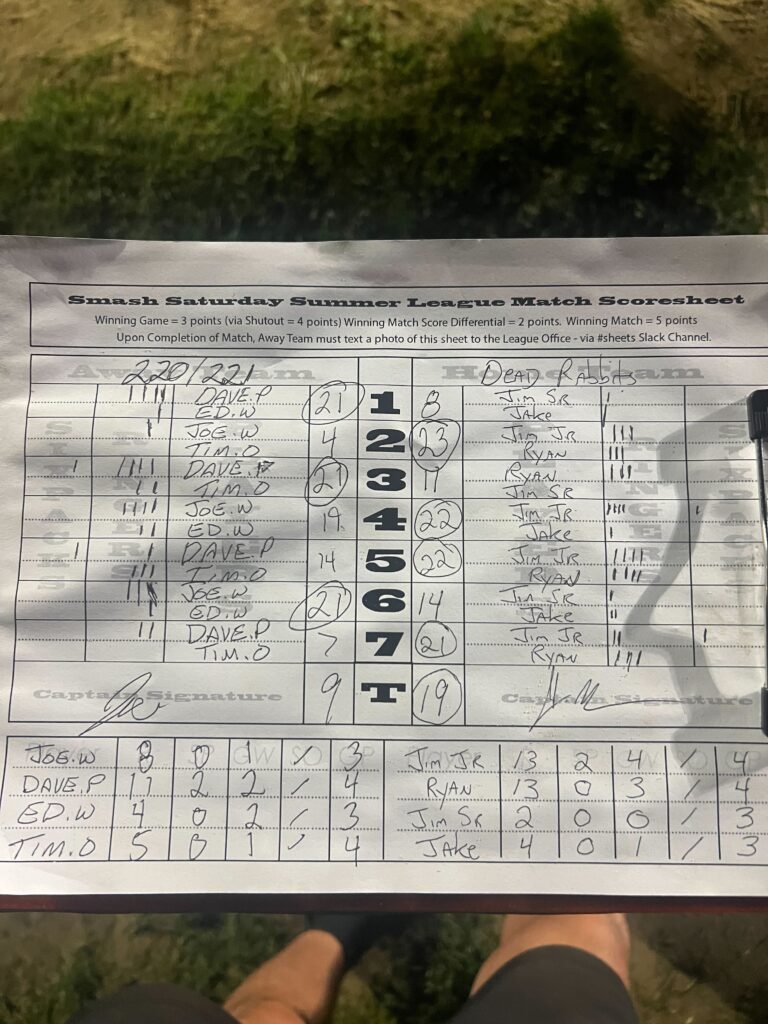 Smash Saturday Summer League Match Scoresheet
Winning Game = 3 points (via Shutout = 4 points) Winning Match Score Differential = 2 points. Winning Match = 5 points
Upon Completion of Match, Away Team must text a photo of this sheet to the League Office - via #sheets Slack Channel.
Away Team Home Team
220/221 DEAD RABBITS
DAVE.P 21 1 8 JIM SR
ED.W JAKE
JOE.W 4 2 23 JIM JR
TIM.O RYAN
DAVE.P 21 3 11 RYAN
TIM.O JIM SR
JOE.W 19 4 22 JIM JR
ED.W JAKE
DAVE.P 14 5 22 JIM JR
TIM.O RYAN
JOE.W 21 6 14 JIM SR
ED.W JAKE
DAVE.P 7 7 21 JIM JR
TIM.O RYAN
Captain Signature 9 T 19 Captain Signature
JOE.W 8 0 1 / 3 JIM JR 13 2 4 / 4
DAVE.P 11 2 2 / 4 RYAN 13 0 3 / 4
ED.W 4 0 2 / 3 JIM SR 2 0 0 / 3
TIM.O 5 0 1 / 4 JAKE 4 0 1 / 3